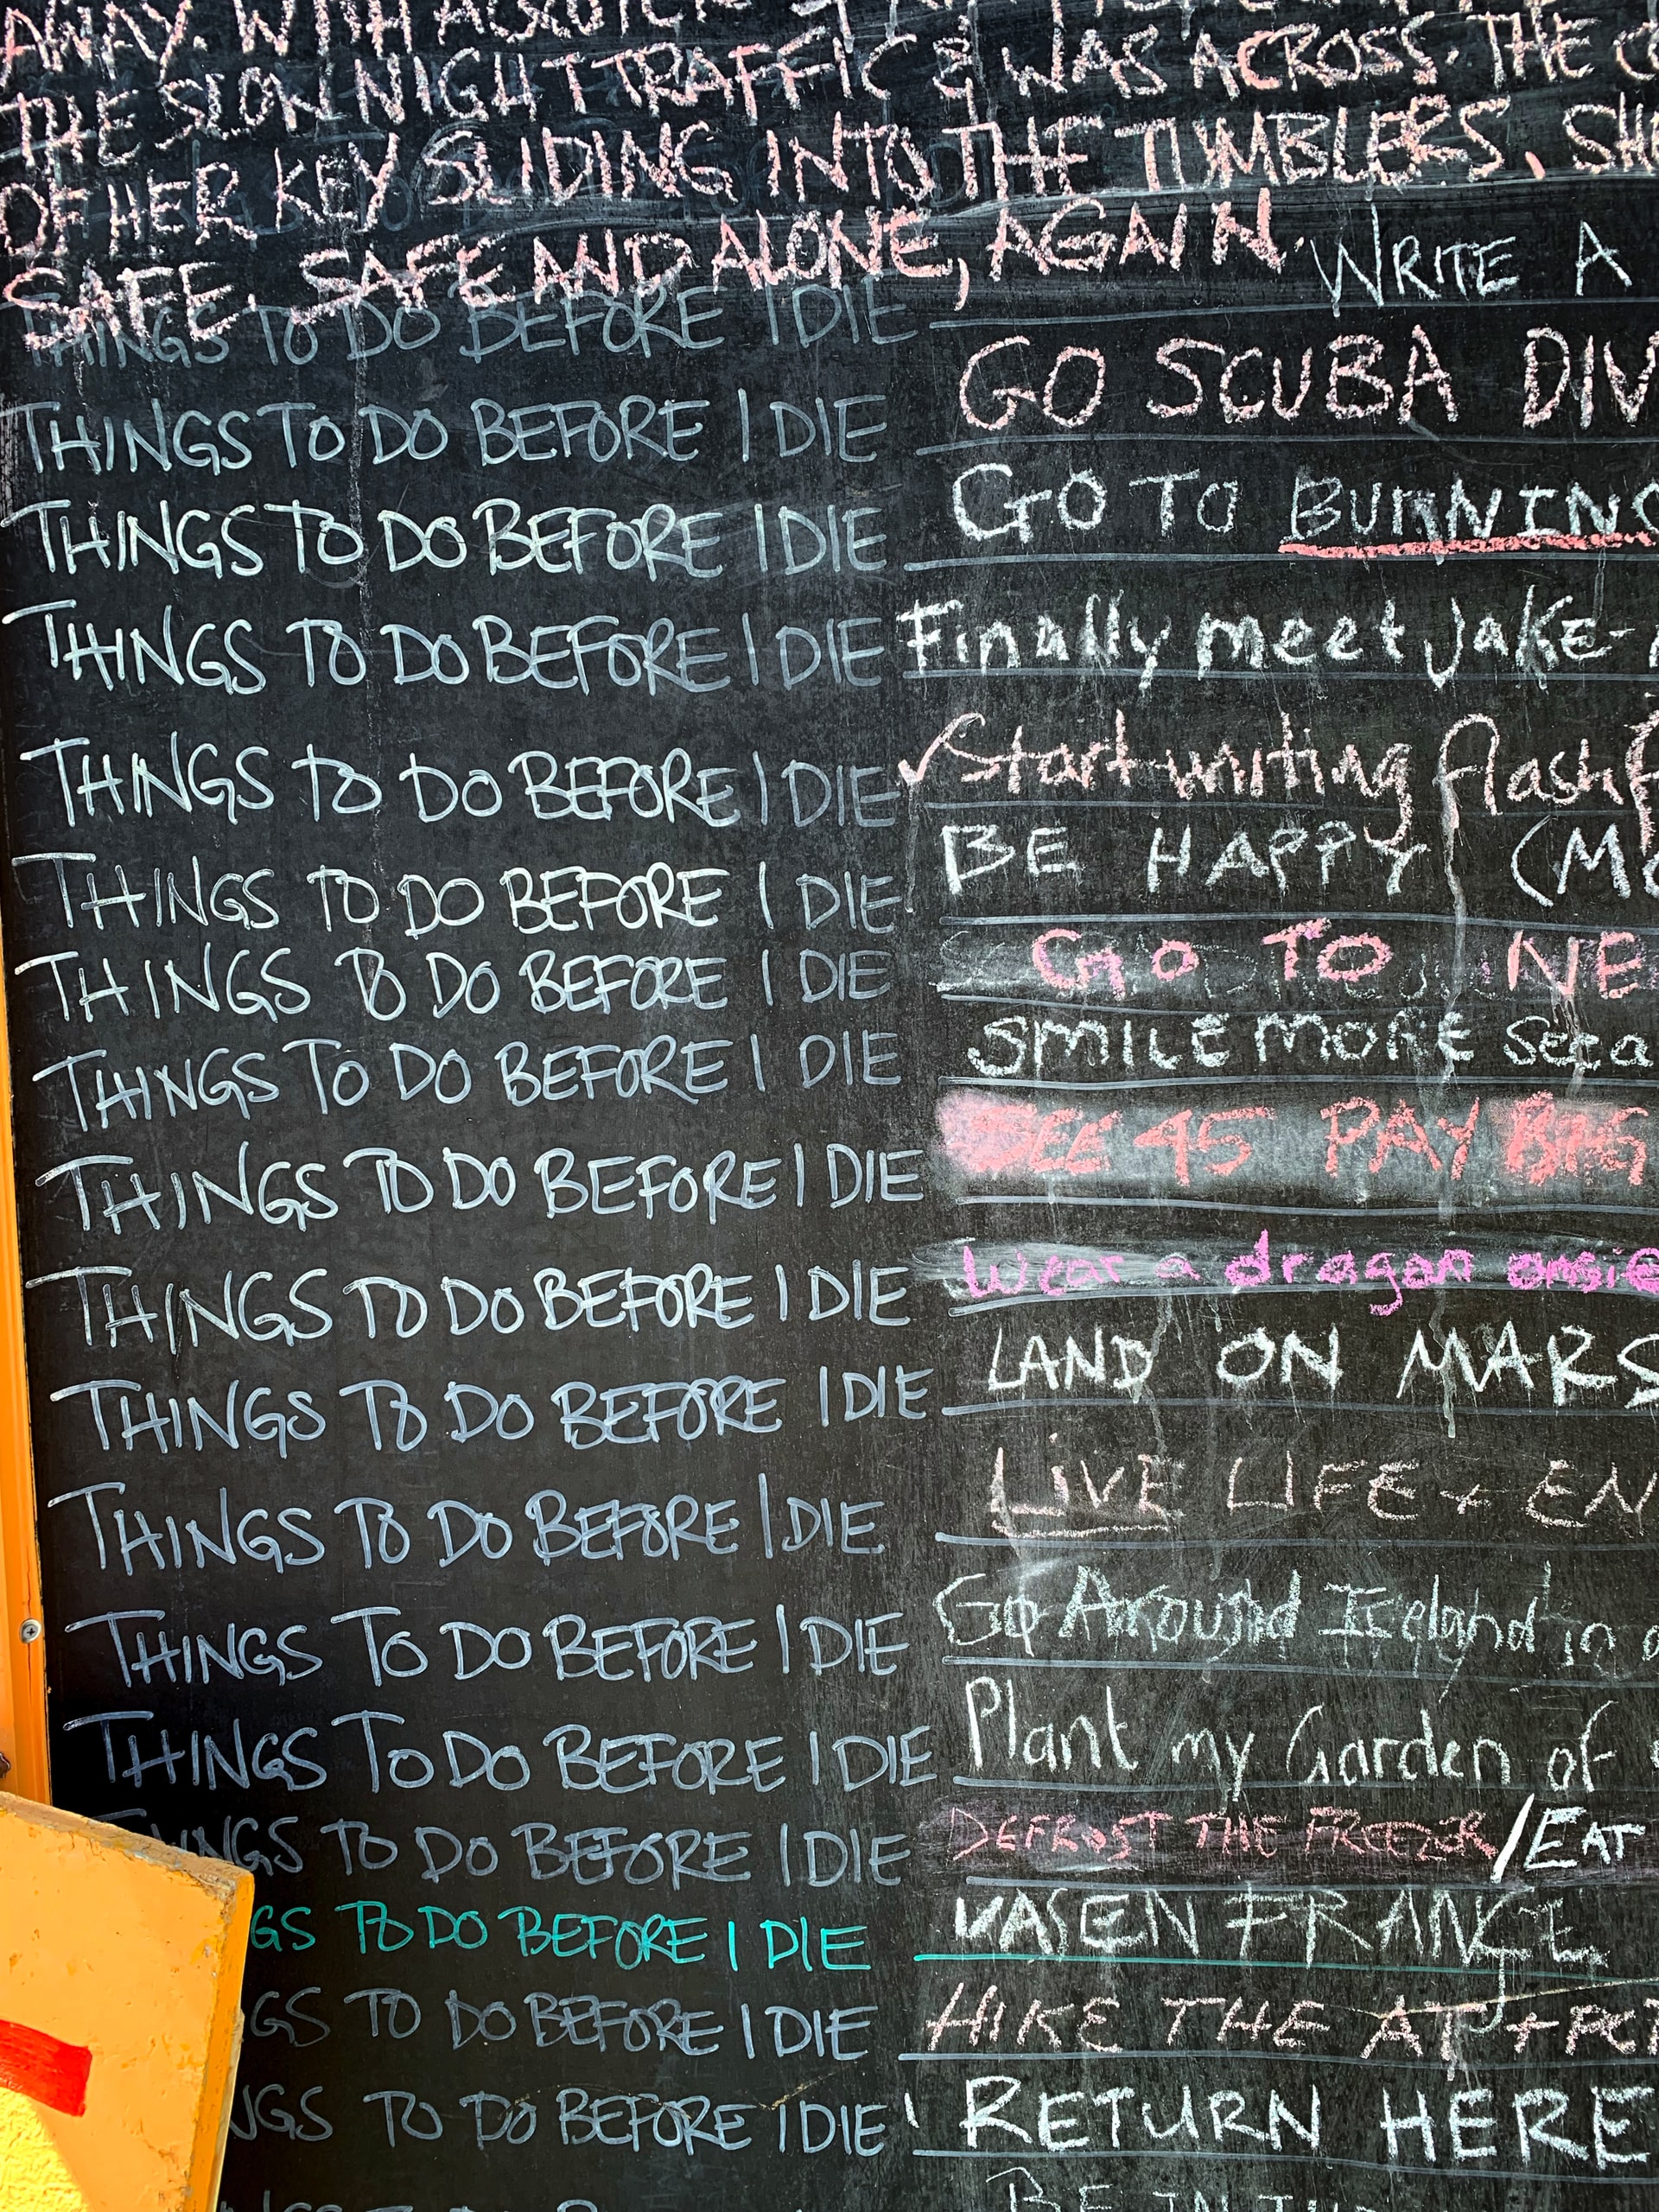 AWAY. WITH A
THE SLOW NIGHT TRAFFIC & WAS ACROSS. THE
OF HER KEY SLIDING INTO THE TUMBLERS. SH
SAFE. SAFE AND ALONE, AGAIN.
THINGS TO DO BEFORE I DIE WRITE A
THINGS TO DO BEFORE I DIE GO SCUBA DIV
THINGS TO DO BEFORE I DIE GO TO BURNING
THINGS TO DO BEFORE I DIE Finally meet Jake-
THINGS TO DO BEFORE I DIE ✓ Start writing flash f
THINGS TO DO BEFORE I DIE BE HAPPY (MO
THINGS TO DO BEFORE I DIE GO TO NE
THINGS TO DO BEFORE I DIE SMILE MORE
THINGS TO DO BEFORE I DIE SEE 45 PAY BIG
THINGS TO DO BEFORE I DIE Wear a dragon onsie
THINGS TO DO BEFORE I DIE LAND ON MARS
THINGS TO DO BEFORE I DIE LIVE LIFE + EN
THINGS TO DO BEFORE I DIE Go Around Iceland in a
THINGS TO DO BEFORE I DIE Plant my Garden of
THINGS TO DO BEFORE I DIE DEFROST THE FREEZER / EAT
GS TO DO BEFORE I DIE VASEN FRANCE
GS TO DO BEFORE I DIE HIKE THE AT + PCT
NGS TO DO BEFORE I DIE RETURN HERE
BE IN THE